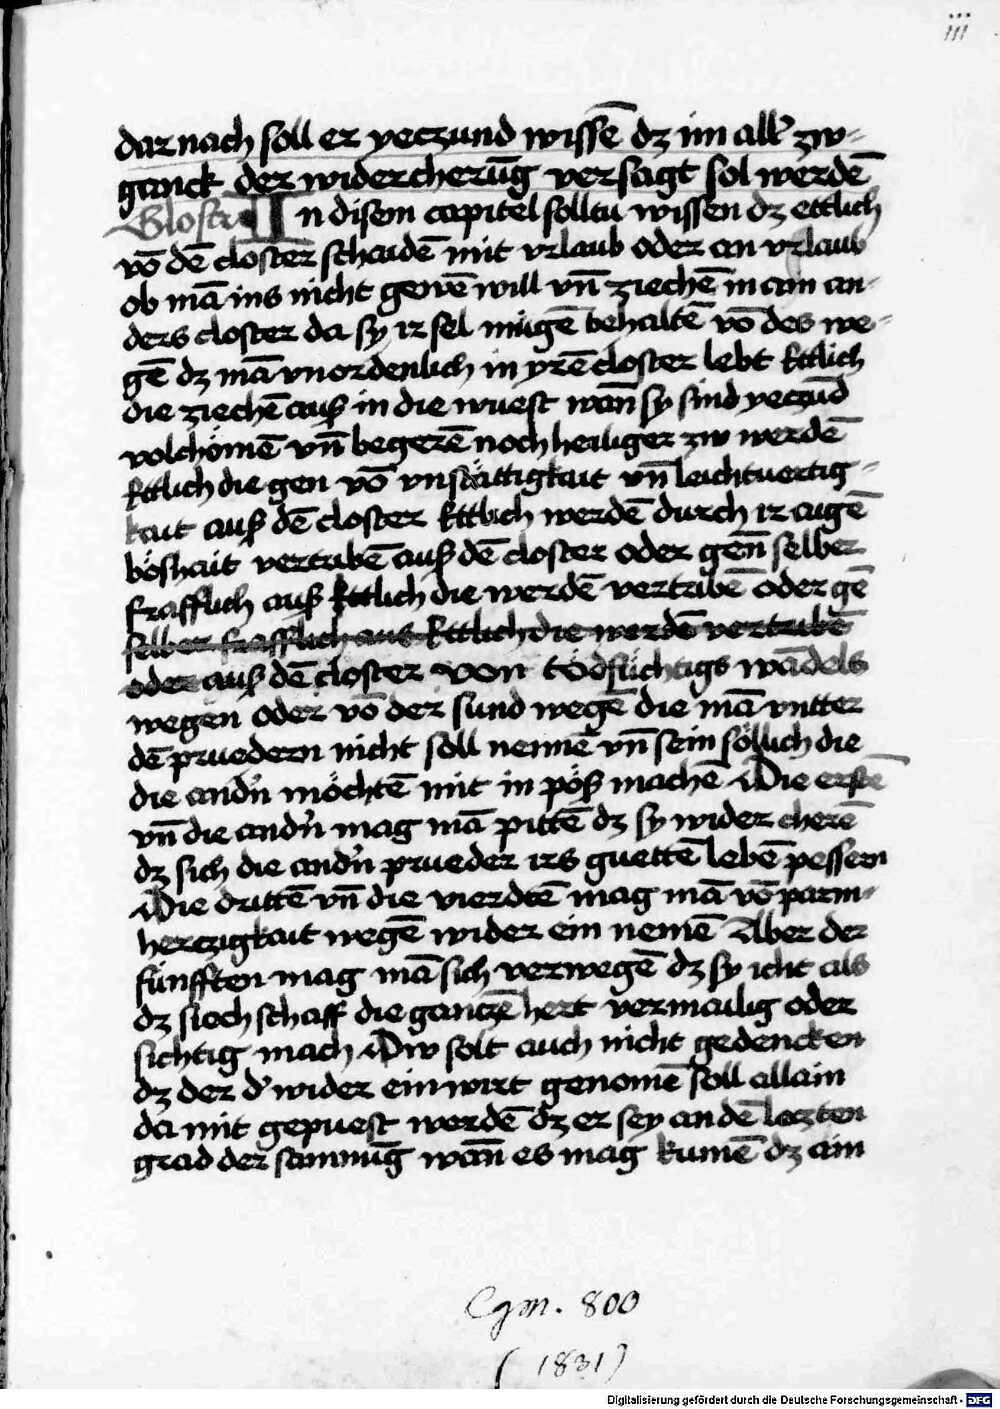 iii
dar nach soll er yeczund wissē dz im all' zw-
ganck der widercherūg versagt sol werdē
Glosa In disem capitel solltu wissen dz ettlich
vō dē closter schaidē mit vrlaub oder an vrlaub
ob mā ins nicht gebē will vn̄ ziechē in ain an-
ders closter da sy ir sel mügē behaltē vō des we-
gē dz mā vnordenlich in yrē closter lebt Ettlich
die ziechē auß in die wuest wān sy sind yeczūd
volchömē vn̄ begerē noch heiliger zw werdē
Ettlich die gen vō vnstättigkait vn̄ leichtuertig-
kait auß dē closter Ettlich werdē durch ir aigē
böshait vertribē auß dē closter oder gen̄ selber
fräfflich auß Ettlich die werdē vertribē oder gē
selber fräfflich aus Ettlich die werdē vertribē
oder auß dē closter von tödsüchtigs wādels
wegen oder vō der sund wegē die mā vntter
dē pruedern nicht soll nennē vn̄ sein söllich die
die andn̄ möchtē mit in pöß machē Die erstē
vn̄ die andn̄ mag mā pittē dz sy wider cherē
dz sich die andn̄ prueder irs guettē lebē pessern
Die drittē vn̄ die vierdtē mag mā vō parm-
herczigkait wegē wider ein nemē Aber der
fünfften mag mā sich verwegē dz sy icht als
dz siech schaff die ganczē hert vermailig oder
sichtig mach Dw solt auch nicht gedencken
dz der d' wider ein wirt genomē soll allain
da mit gepuest werdē dz er sey an dē leczten
grad der samnūg wān es mag kumē dz ain
Cgm. 800
(1831)
Digitalisierung gefördert durch die Deutsche Forschungsgemeinschaft - DFG